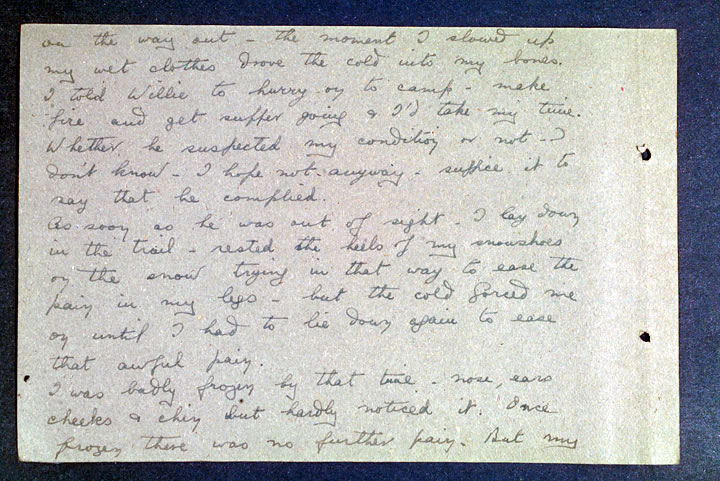 on the way out - the moment I slowed up
my wet clothes drove the cold into my bones.
I told Willie to hurry on to camp - make
fire and get supper going & I'd take my time.
Whether he suspected my condition or not - I
don't know - I hope not - anyway - suffice it to
say that he complied.
As soon as he was out of sight - I lay down
in the trail - rested the heels of my snowshoes
on the snow trying in that way to ease the
pain in my legs - but the cold forced me
on until I had to lie down again to ease
that awful pain.
I was badly frozen by that time - nose, ears
cheeks & chin but hardly noticed it. Once
frozen there was no further pain. But my